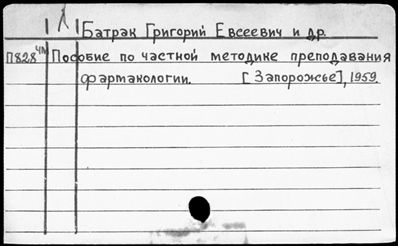 Батрак Григорий Евсеевич и др.
П828 Пособие по частной методике преподавания
фармакологии. [Запорожье], 1959.